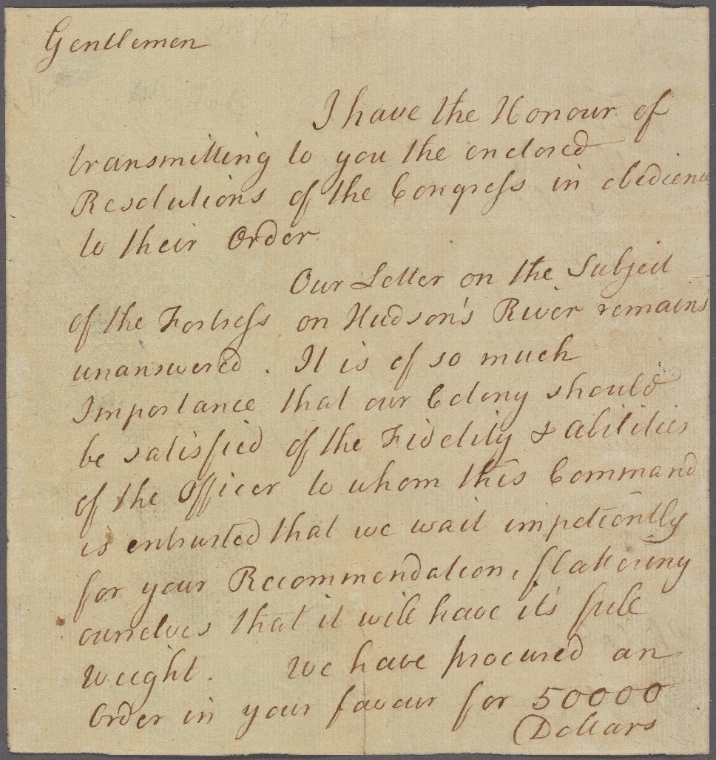 Gentlemen
I have the Honour of
transmitting to you the enclosed
Resolutions of the Congress in obedience
to their Order
Our Letter on the Subject
of the Fortress on Hudson's River remains
unanswered. It is of so much
Importance that our Colony should
be satisfied of the Fidelity & abilities
of the Officer to whom this Command
is entrusted that we wait impatiently
for your Recommendation, flattering
ourselves that it will have it's full
Weight. We have procured an
Order in your favour for 50000
Dollars